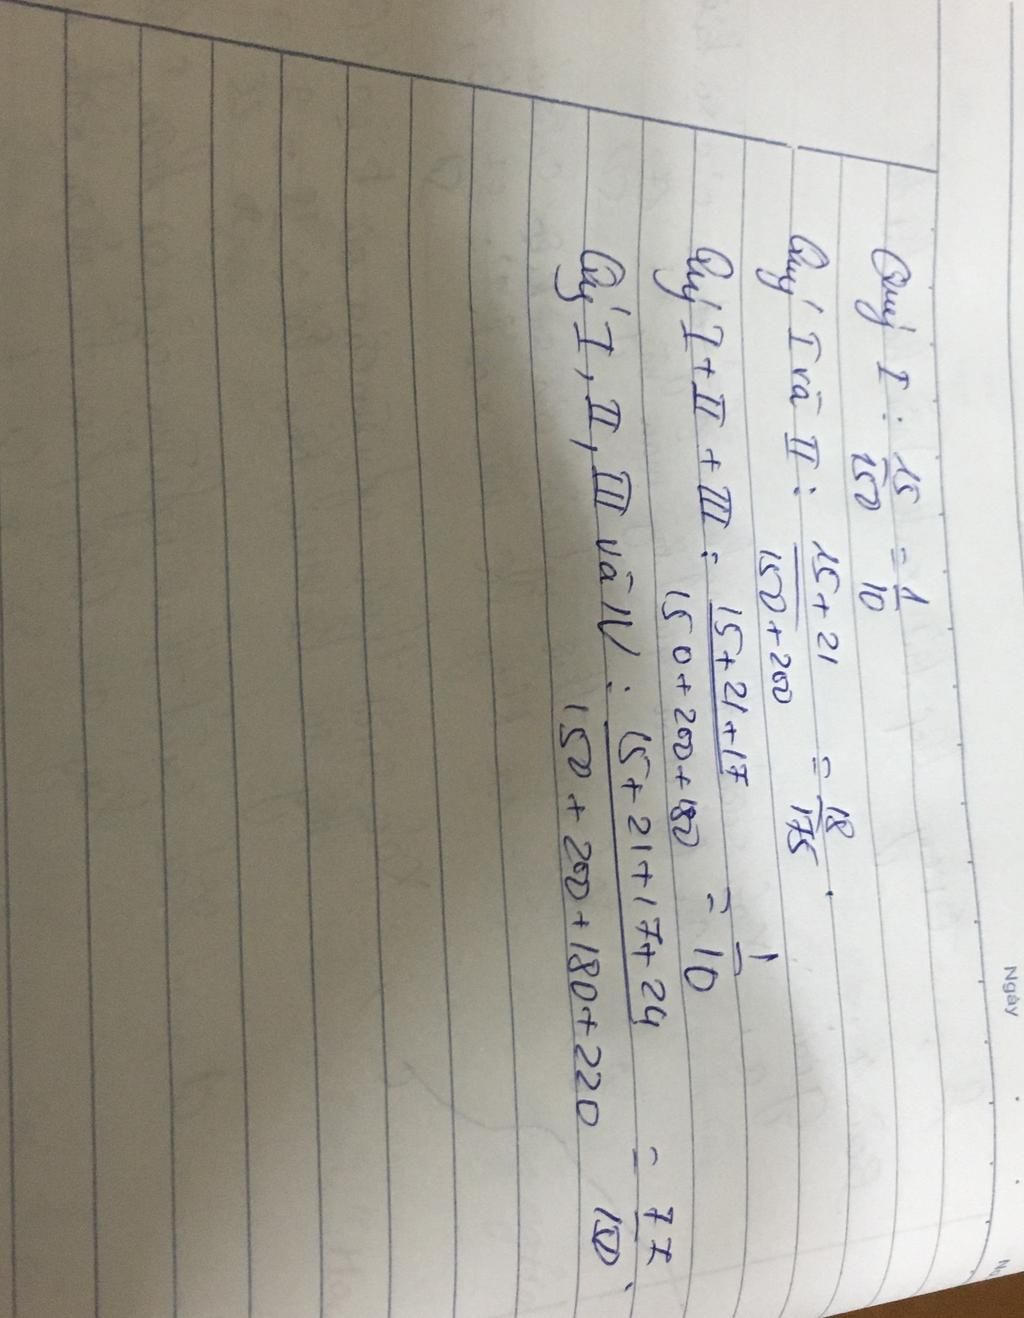 Ngày
Quý I : 15/150 = 1/10
Quý I và II : 15+21/150+200 = 18/175 .
Quý I + II + III : 15+21+17/150+200+180 = 1/10
Quý I, II, III và IV : 15+21+17+24/150+200+180+220 = 77/150 .